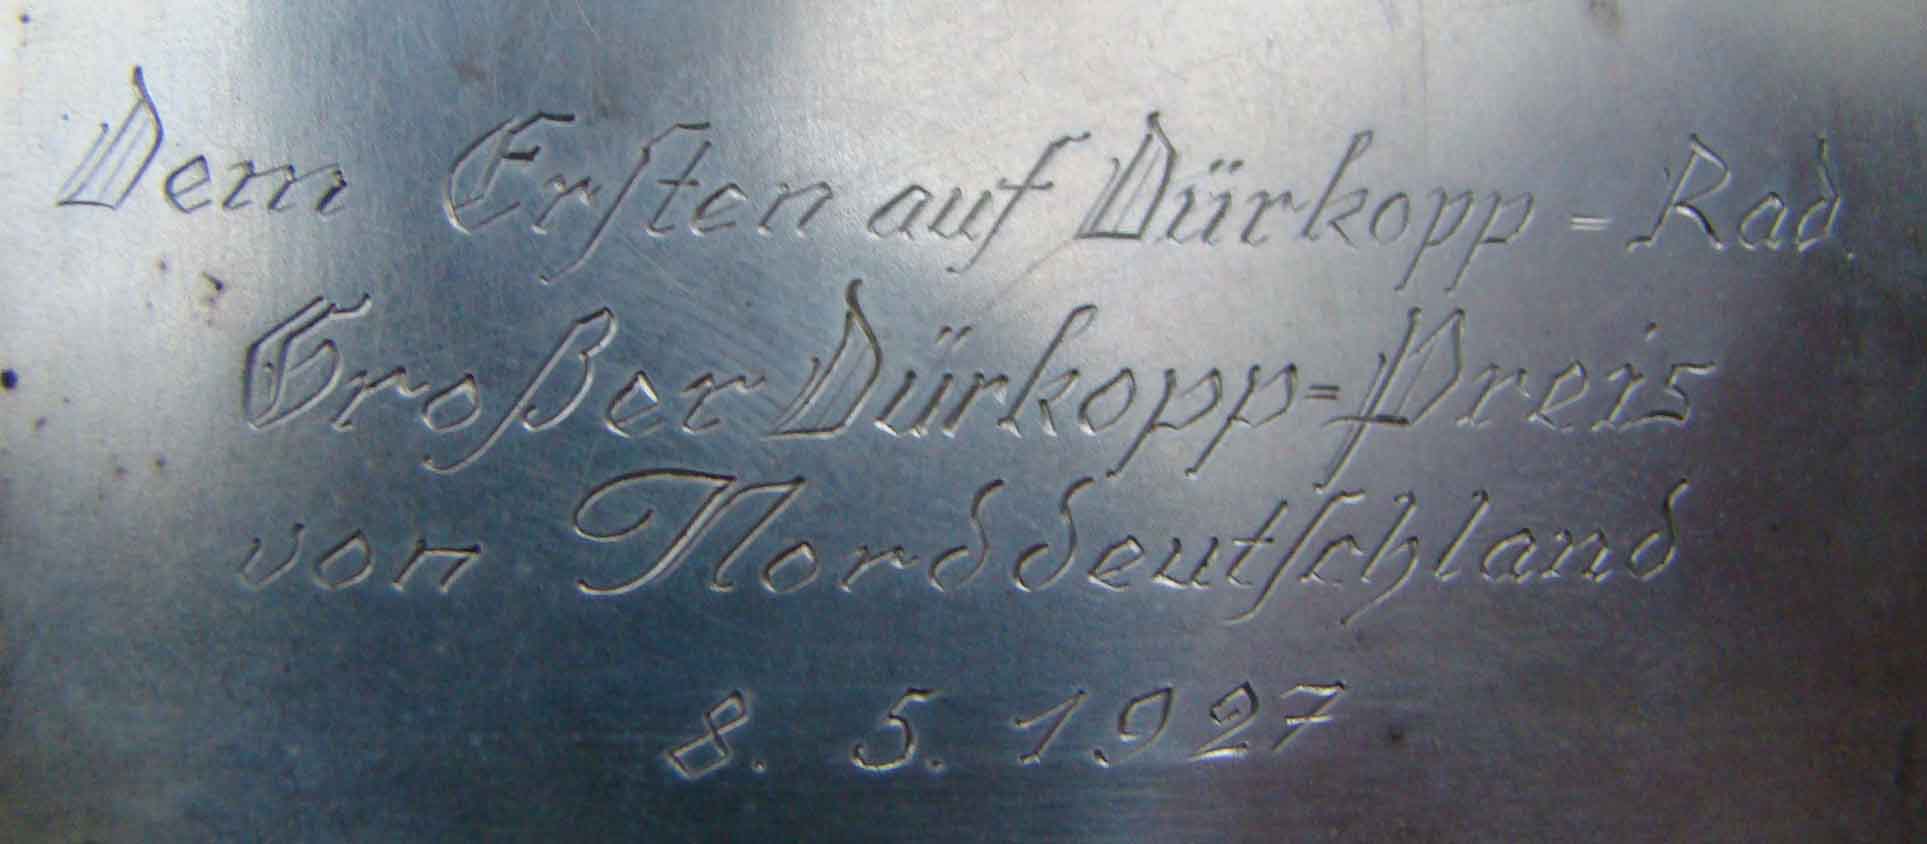 Dem Erſten auf Dürkopp=Rad.
Großer Dürkopp=Preis
von Norddeutſchland
8. 5. 1927